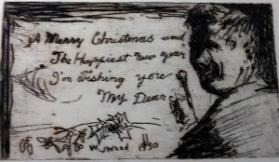 A Merry Christmas and
The Happiest New year
I'm Wishing you
My Dear